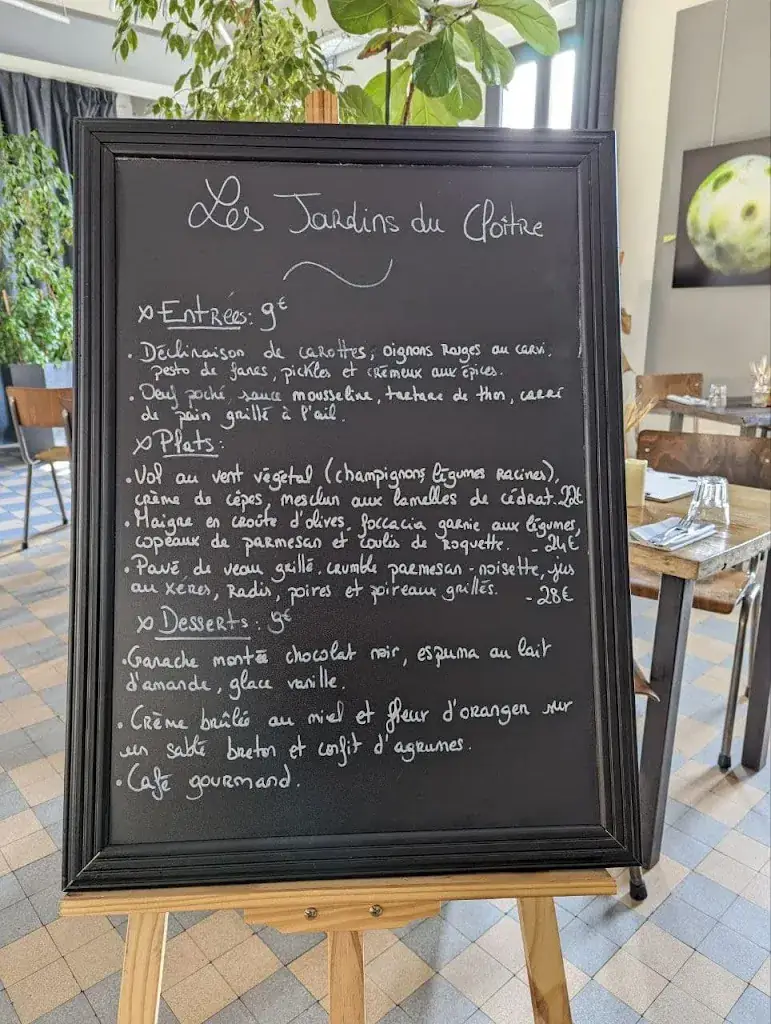 Les Jardins du Cloître
Entrées: 9€
• Déclinaison de carottes, oignons rouges au carvi,
pesto de fanes, pickles et crémeux aux épices.
• Oeuf poché, sauce mousseline, tartare de thon, carré
de pain grillé à l'ail.
Plats:
• Vol au vent végétal (champignons, légumes racines),
crème de cèpes, mesclun aux lamelles de cédrat. 22€
• Maigre en croûte d'olives, foccacia garnie aux légumes,
copeaux de parmesan et coulis de roquette. - 24€
• Pavé de veau grillé, crumble parmesan-noisette, jus
au xérès, radis, poires et poireaux grillés. - 28€
Desserts: 9€
• Ganache monté chocolat noir, espuma au lait
d'amande, glace vanille.
• Crème brûlée au miel et fleur d'oranger sur
un sablé breton et confit d'agrumes.
• Café gourmand.